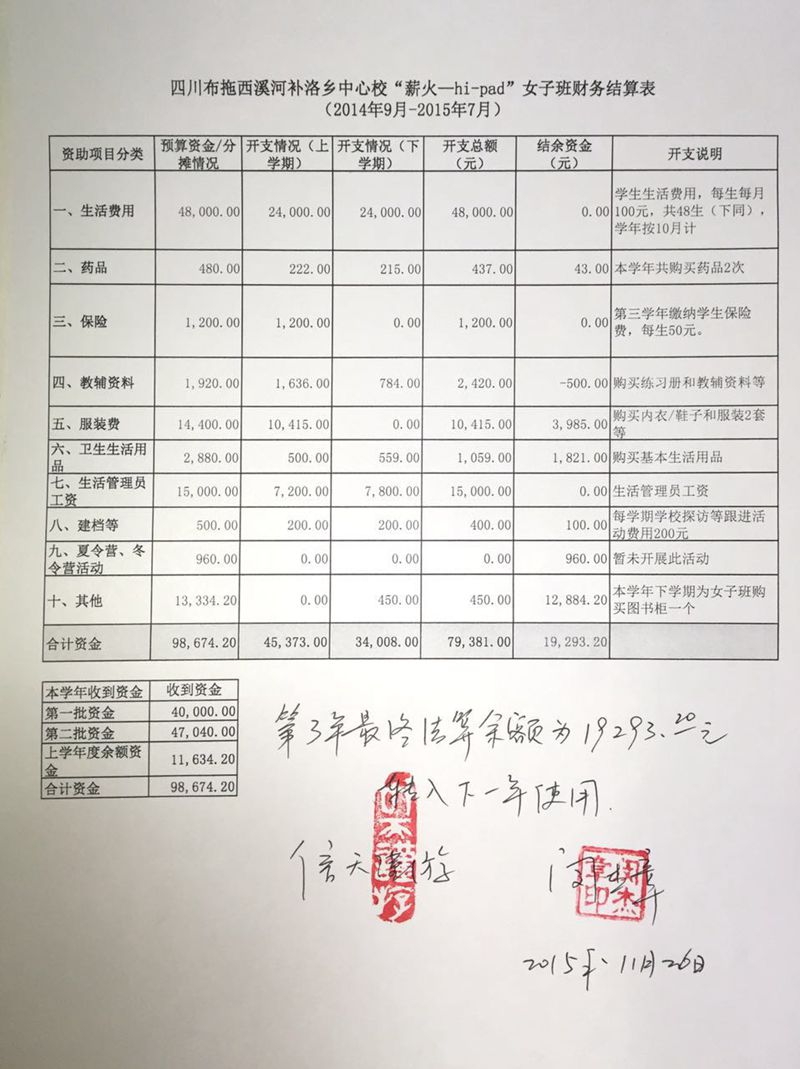 四川布拖西溪河补洛乡中心校“薪火—hi-pad”女子班财务结算表
（2014年9月-2015年7月）
资助项目分类 预算资金/分摊情况 开支情况（上学期） 开支情况（下学期） 开支总额（元） 结余资金（元） 开支说明
一、生活费用 48,000.00 24,000.00 24,000.00 48,000.00 0.00 学生生活费用，每生每月100元，共48生（下同），学年按10月计
二、药品 480.00 222.00 215.00 437.00 43.00 本学年共购买药品2次
三、保险 1,200.00 1,200.00 0.00 1,200.00 0.00 第三学年缴纳学生保险费，每生50元。
四、教辅资料 1,920.00 1,636.00 784.00 2,420.00 -500.00 购买练习册和教辅资料等
五、服装费 14,400.00 10,415.00 0.00 10,415.00 3,985.00 购买内衣/鞋子和服装2套等
六、卫生生活用品 2,880.00 500.00 559.00 1,059.00 1,821.00 购买基本生活用品
七、生活管理员工资 15,000.00 7,200.00 7,800.00 15,000.00 0.00 生活管理员工资
八、建档等 500.00 200.00 200.00 400.00 100.00 每学期学校探访等跟进活动费用200元
九、夏令营、冬令营活动 960.00 0.00 0.00 0.00 960.00 暂未开展此活动
十、其他 13,334.20 0.00 450.00 450.00 12,884.20 本学年下学期为女子班购买图书柜一个
合计资金 98,674.20 45,373.00 34,008.00 79,381.00 19,293.20
本学年收到资金 收到资金
第一批资金 40,000.00
第二批资金 47,040.00
上学年度余额资金 11,634.20
合计资金 98,674.20
第3年最终结算余额为19293.20元
转入下一年使用.
信天谨游
2015年.11月26日